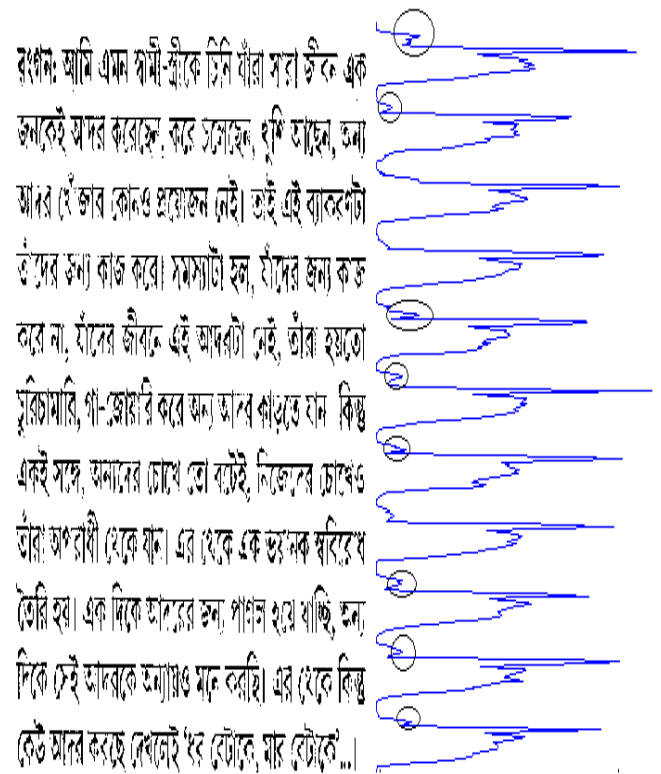 রংগন: আমি এমন স্বামী-স্ত্রীকে চিনি যাঁরা সারা জীবন এক
জনকেই আদর করেছেন, করে চলেছেন, খুশি আছেন, অন্য
আদর খোঁজার কোনও প্রয়োজন নেই। তাই এই ব্যাকরণটা
তাঁদের জন্য কাজ করে। সমস্যাটা হল, যাঁদের জন্য কাজ
করে না, যাঁদের জীবনে এই আদরটা নেই, তাঁরা হয়তো
চুরিচামারি, গা-জোয়ারি করে অন্য আদর কাড়তে যান কিন্তু
একই সঙ্গে, অন্যদের চোখে তো বটেই, নিজেদের চোখেও
তাঁরা অপরাধী থেকে যান। এর থেকে এক ভয়ানক স্ববিরোধ
তৈরি হয়। এক দিকে আদরের জন্য পাগল হয়ে যাচ্ছি, অন্য
দিকে সেই আদরকে অন্যায়ও মনে করছি। এর থেকে কিন্তু
কেউ আদর করছে দেখলেই ‘ধর বেটাকে, মার বেটাকে’...।